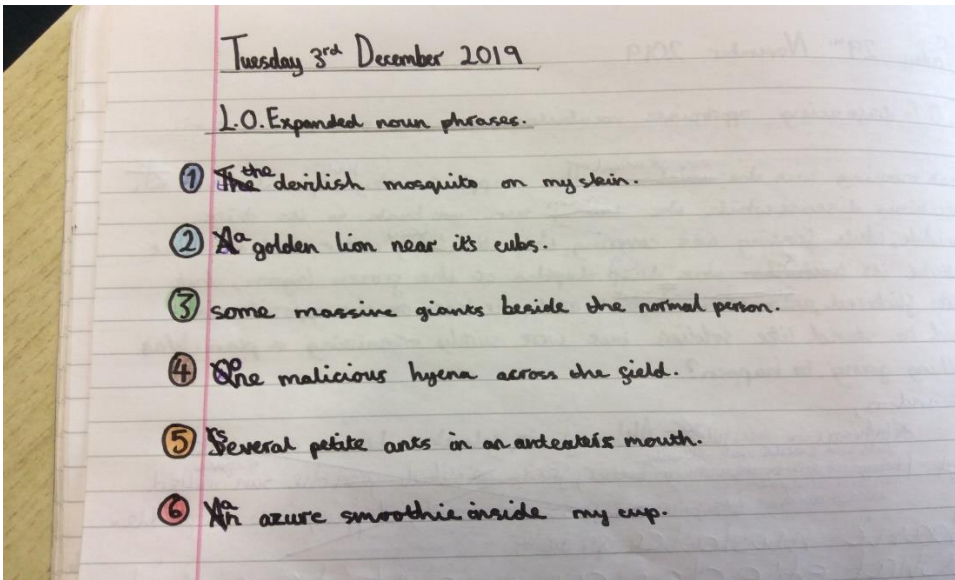 Tuesday 3rd December 2019
L.O. Expanded noun phrases.
1 the devilish mosquito on my skin.
2 a golden lion near it's cubs.
3 some massive giants beside the normal person.
4 one malicious hyena across the field.
5 several petite ants in an anteater's mouth.
6 an azure smoothie inside my cup.
2019